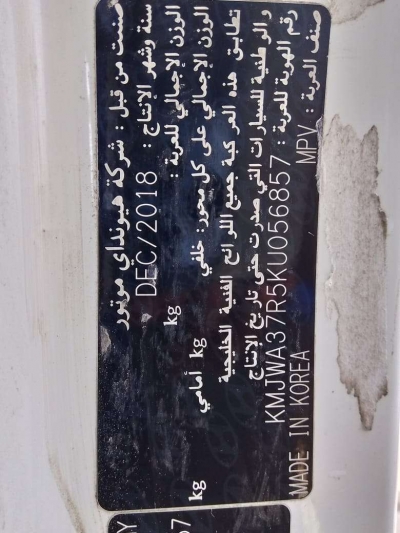 صنعت من قبل : شركة هيونداي موتور
سنة وشهر الإنتاج : DEC/2018
الوزن الإجمالي للعربة : kg
الوزن الإجمالي على كل محور: خلفي kg أمامي kg
تطابق هذه المركبة جميع اللوائح الفنية الخليجية
و الوطنية للسيارات التي صدرت حتى تاريخ الإنتاج
رقم الهوية للعربة : KMJWA37R5KU056857
صنف العربة : MPV MADE IN KOREA
AY
57